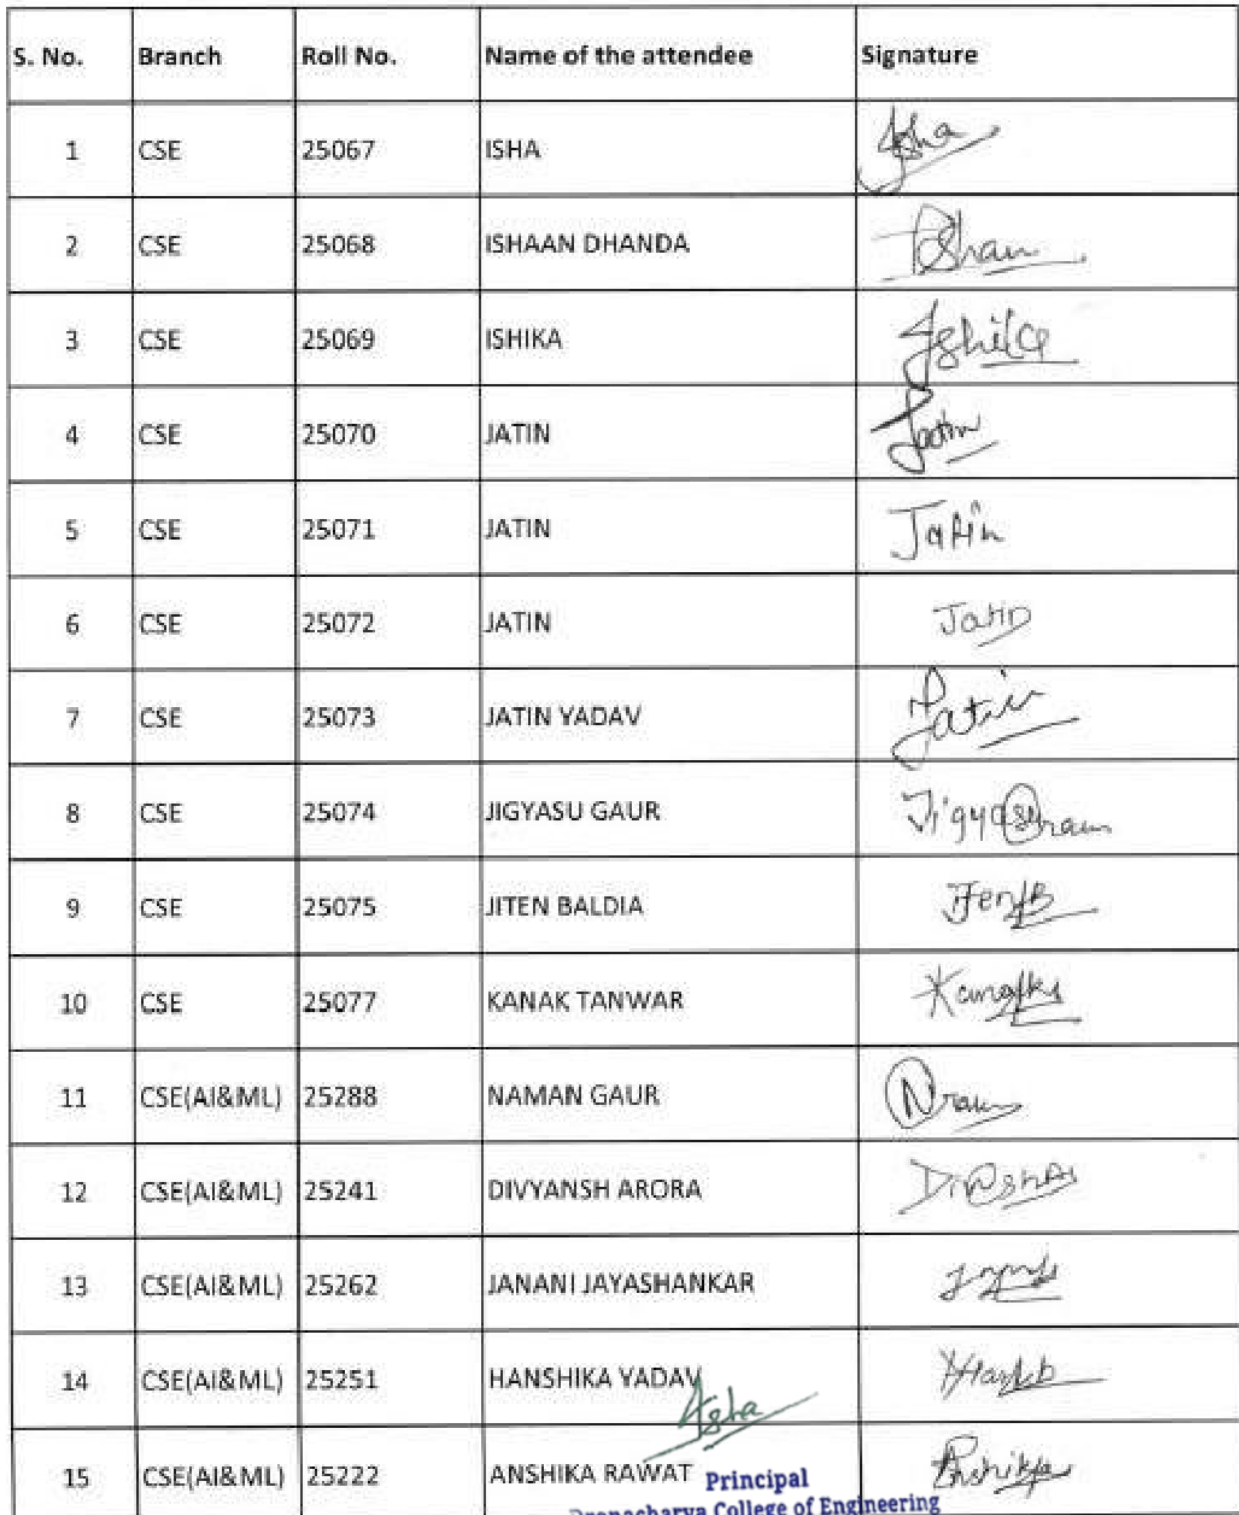 S. No. Branch Roll No. Name of the attendee Signature
1 CSE 25067 ISHA Isha
2 CSE 25068 ISHAAN DHANDA Ishaan
3 CSE 25069 ISHIKA Ishika
4 CSE 25070 JATIN Jatin
5 CSE 25071 JATIN Jatin
6 CSE 25072 JATIN Jatin
7 CSE 25073 JATIN YADAV Jatin
8 CSE 25074 JIGYASU GAUR
9 CSE 25075 JITEN BALDIA
10 CSE 25077 KANAK TANWAR
11 CSE(AI&ML) 25288 NAMAN GAUR
12 CSE(AI&ML) 25241 DIVYANSH ARORA
13 CSE(AI&ML) 25262 JANANI JAYASHANKAR
14 CSE(AI&ML) 25251 HANSHIKA YADAV
15 CSE(AI&ML) 25222 ANSHIKA RAWAT Anshika
Principal
Dronacharya College of Engineering